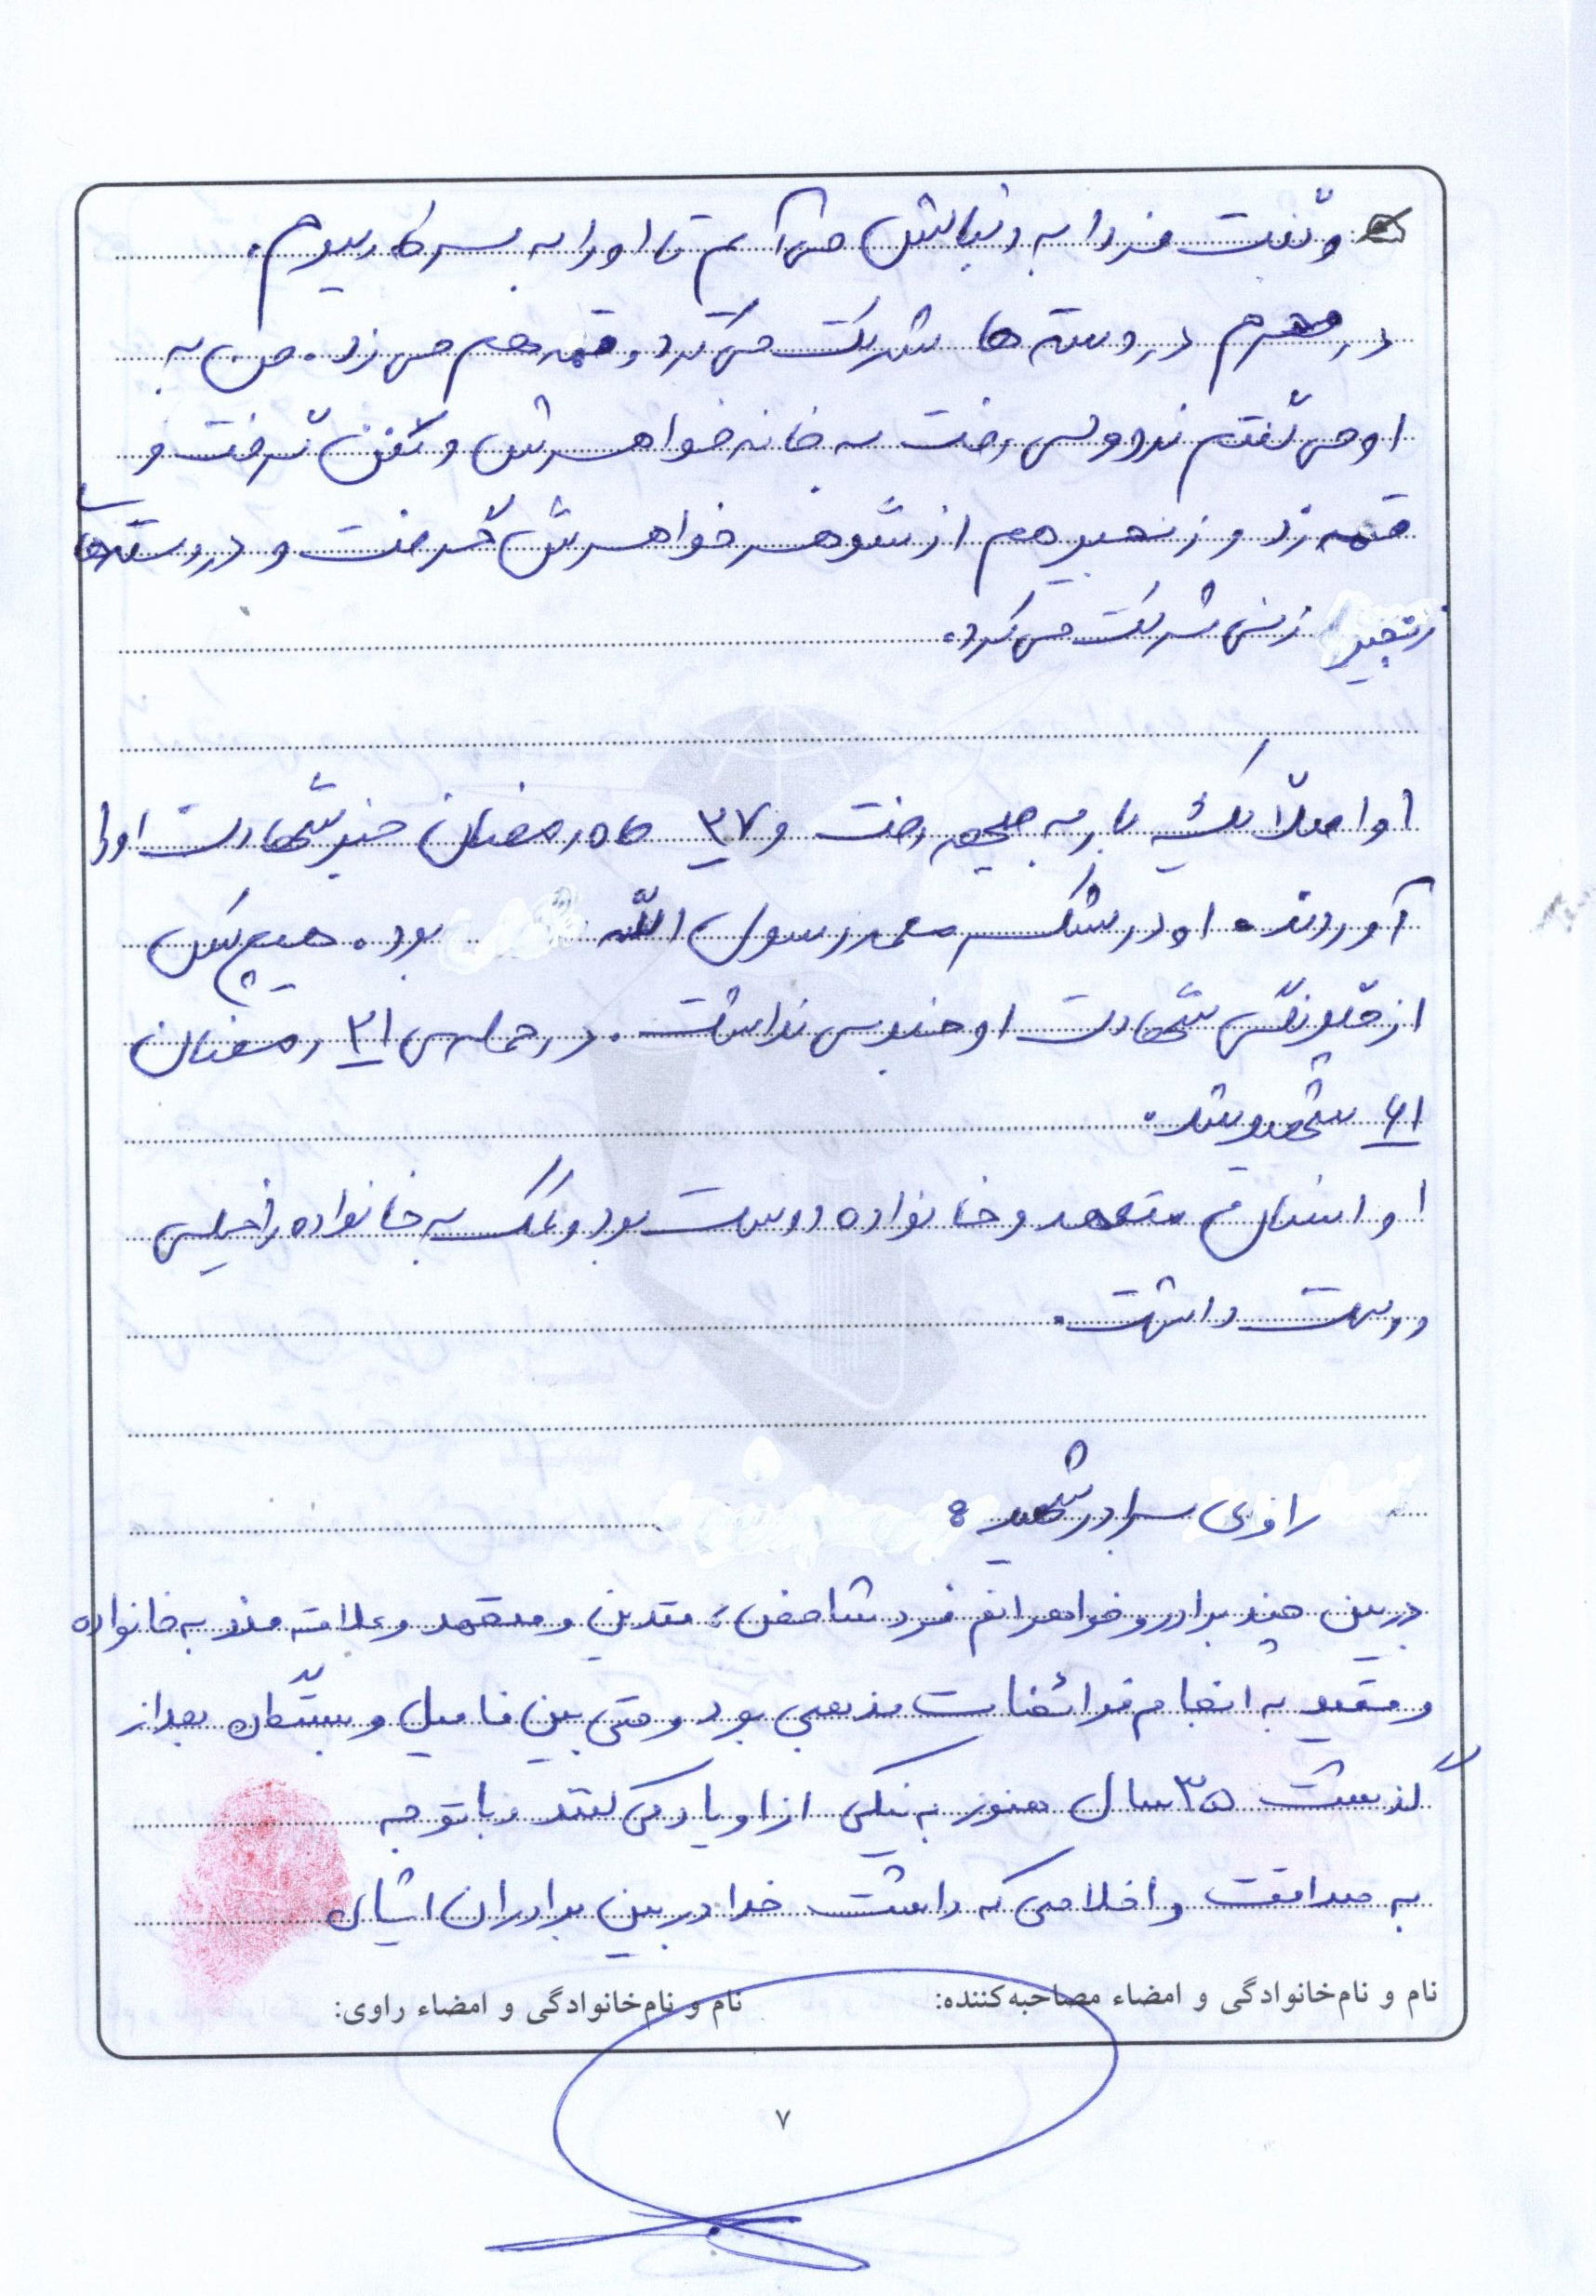 و گفت فردا به دنبالش می آیم تا او را به سر کار ببرم.
در محرم در دسته ها شرکت می کرد و قمه هم می زد. من به
او می گفتم نرو ولی رفت به خانه خواهرش و کفن گرفت و
قمه زد و زنجیر هم از شوهر خواهرش گرفت و در دسته های
زنجیر زنی شرکت می کرد.
او اصلاً یک بار به جبهه رفت و ۲۷ ماه رمضان خبر شهادت او را
آوردند. او در لشکر محمد رسول الله بود. هیچ کس
از چگونگی شهادت او خبری نداشت. در حمله ی ۲۱ رمضان
۶۱ شهید شد.
او انسانی متعهد و خانواده دوست بود و کمک به خانواده را خیلی
دوست داشت.
راوی برادر شهید :
در بین چند برادر و خواهرانم فرد شاخص، متدین و متعهد و علاقه مند به خانواده
و مقید به انجام فرائضات مذهبی بود و حتی بین فامیل و بستگان بعد از
گذشت ۳۵ سال هنوز به نیکی از او یاد می کنند و با توجه
به صداقت و اخلاصی که داشت خدا در بین برادران ایشان
نام و نام‌خانوادگی و امضاء مصاحبه‌کننده: نام و نام‌خانوادگی و امضاء راوی:
۷